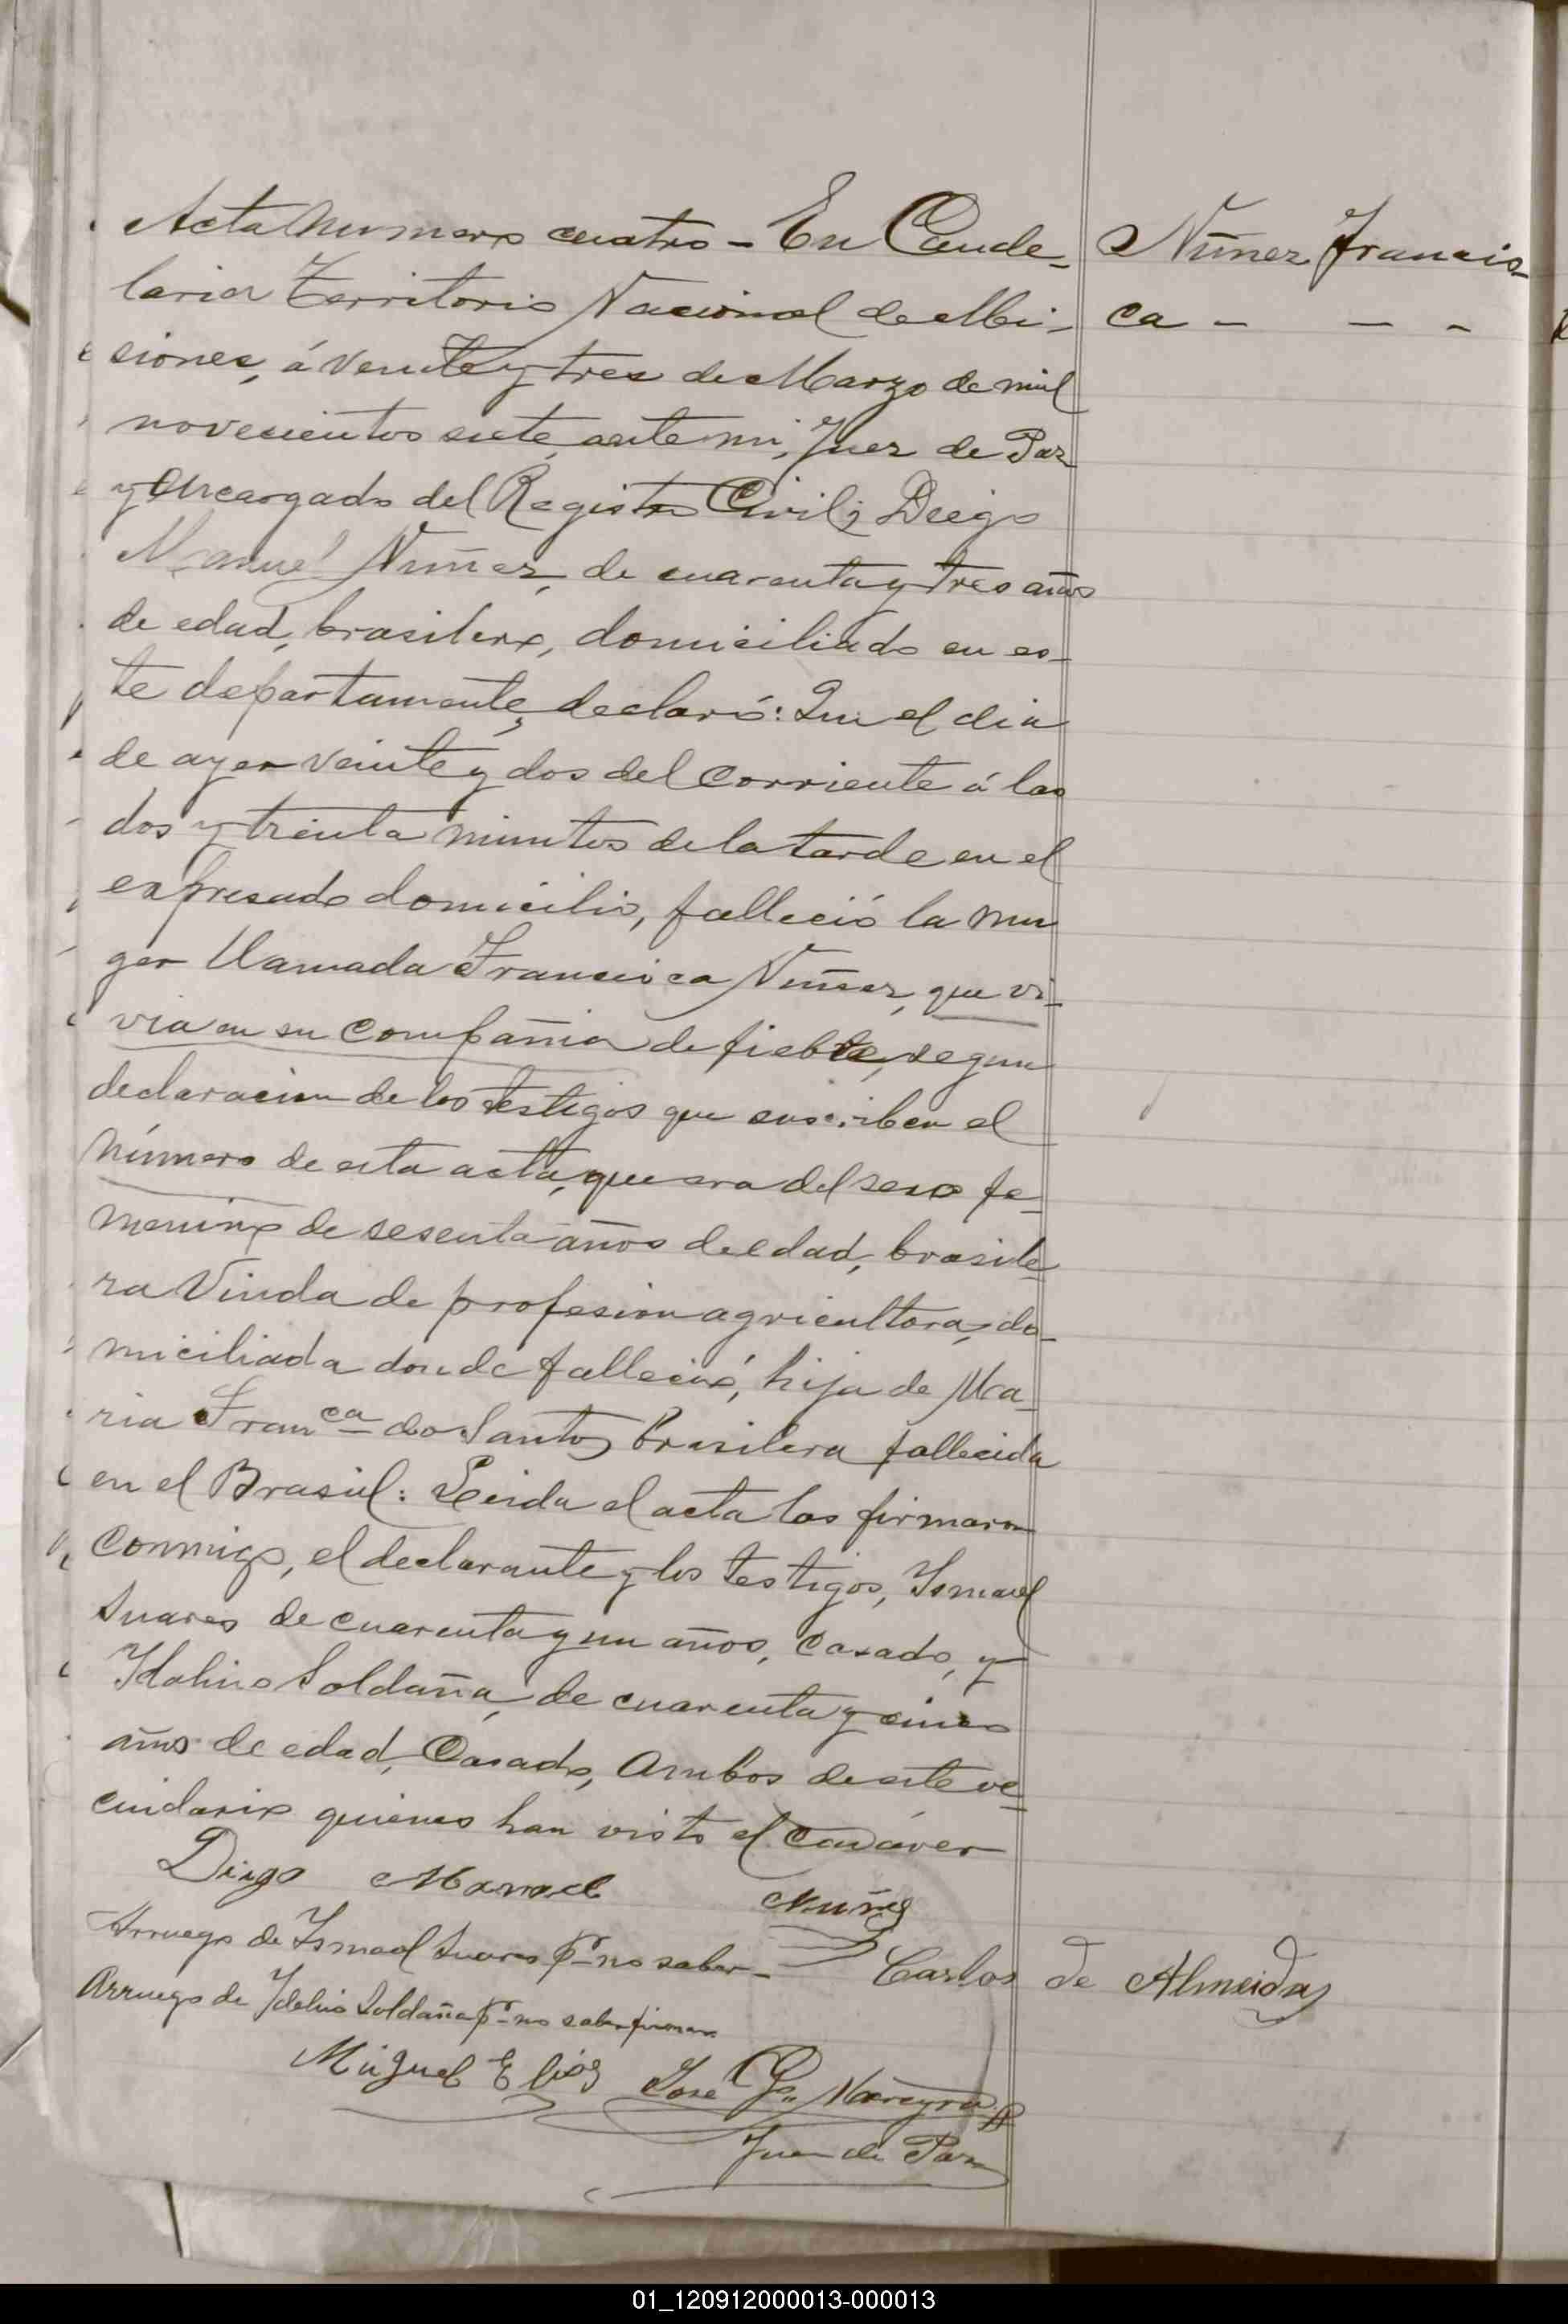 Acta Numero cuatro - En Cande-
laria Territorio Nacional de Mi-
siones, á veinte y tres de Marzo de mil
novecientos siete, ante mi, Juez de Paz
y Encargado del Registro Civil, Diego
Manuel Nuñez, de cuarenta y tres años
de edad, brasilero, domiciliado en es-
te departamento, declaró: Que el dia
de ayer veinte y dos del corriente á las
dos y treinta minutos de la tarde en el
expresado domicilio, falleció la mu
ger llamada Francisca Nuñez, que vi-
via en su compañia de fiebre, segun
declaracion de los testigos que suscriben el
número de esta acta, que era del sexo fe-
menino de sesenta años de edad, brasile-
ra Viuda de profesion agricultora, do-
miciliada donde falleció, hija de Ma-
ria Franca do Santos brasilera fallecida
en el Brasil: Leida el acta las firmaron
conmigo, el declarante y los testigos, Ismael
Suares de cuarenta y un años, casado, y
Idalino Soldaña, de cuarenta y cinco
años de edad, Casado, ambos de este ve-
cindario quienes han visto el cadáver
Diego Manuel Nuñes
Arruego de Ismael Suares Pr no saber -
Carlos de Almeida
Arruego de Idelino Soldaña Pr no saber firmar
Miguel Elias José G. Mareyra
Juez de Paz
Nuñez Francis-
ca - - -
01_120912000013-000013